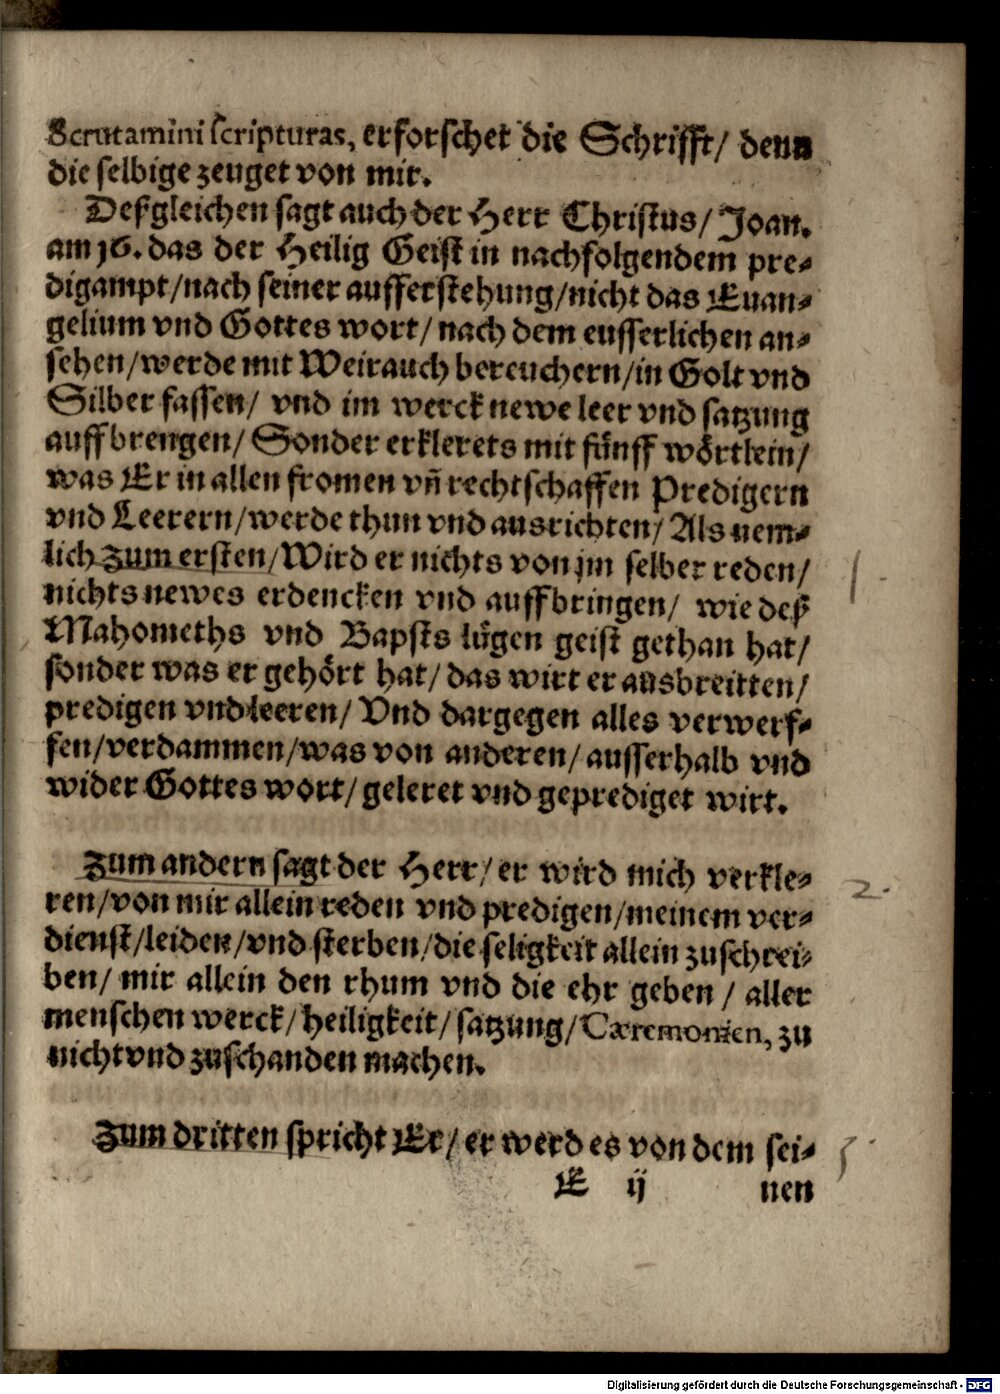 Scrutamini scripturas, erforschet die Schrifft/ denn
die selbige zeuget von mir.
Deßgleichen sagt auch der Herr Christus/ Joan.
am 16. das der Heilig Geist in nachfolgendem pre-
digampt/nach seiner aufferstehung/nicht das Euan-
gelium vnd Gottes wort/ nach dem eusserlichen an-
sehen/werde mit Weirauch bereuchern/in Golt vnd
Silber fassen/ vnd im werck newe leer vnd satzung
auffbrengen/ Sonder erklerets mit fünff wörtlein/
was Er in allen fromen vñ rechtschaffen Predigern
vnd Leerern/werde thun vnd ausrichten/ Als nem-
lich zum ersten/Wird er nichts von jm selber reden/
nichts newes erdencken vnd auffbringen/ wie deß
Mahomeths vnd Bapsts lügen geist gethan hat/
sonder was er gehört hat/ das wirt er ausbreitten/
predigen vnd leeren/ Vnd dargegen alles verwerf-
fen/verdammen/was von anderen/ausserhalb vnd
wider Gottes wort/ geleret vnd geprediget wirt.
1.
Zum andern sagt der Herr/ er wird mich verkle-
ren/von mir allein reden vnd predigen/meinem ver-
dienst/leiden/vnd sterben/die seligkeit allein zuschrei-
ben/ mir allein den rhum vnd die ehr geben / aller
menschen werck/heiligkeit/satzung/Cæremonien, zu
nicht vnd zuschanden machen.
2.
Zum dritten spricht Er/ er werd es von dem sei-
E ij nen
3.
Digitalisierung gefördert durch die Deutsche Forschungsgemeinschaft - DFG